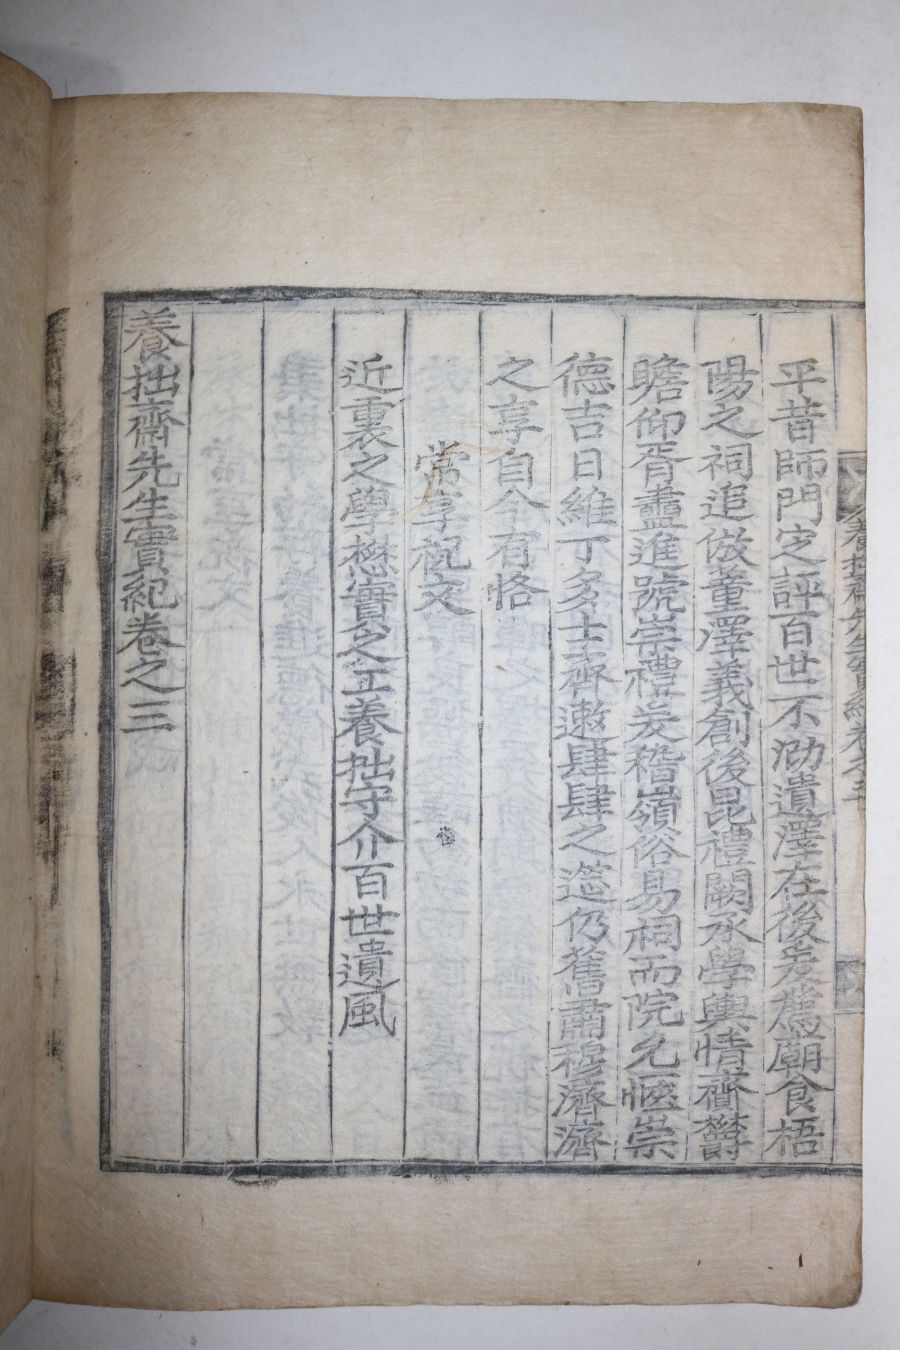 平昔師門定評百世不泐遺澤在後爰薦廟食梧
陽之祠追倣董澤義創後昆禮闕承學輿情齊鬱
瞻仰胥盡進號崇禮爰稽嶺俗易祠而院允愜崇
德吉日維丁多士齊遬肆肆之筵仍舊肅穆濟濟
之享自今有恪
常享祝文
近裏之學懋實之正養拙守介百世遺風
養拙齋先生實紀卷之三